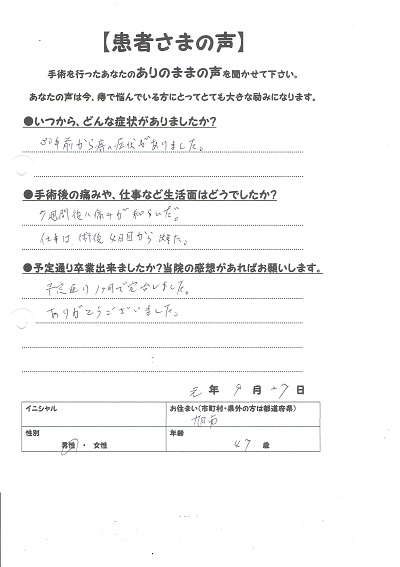 【患者さまの声】
手術を行ったあなたのありのままの声を聞かせて下さい。
あなたの声は今、痔で悩んでいる方にとってとても大きな励みになります。
●いつから、どんな症状がありましたか?
年前から痔の症状がありました。
●手術後の痛みや、仕事など生活面はどうでしたか?
週間後に痛みが和らいだ。
仕事は術後4日目から出来た。
●予定通り卒業出来ましたか?当院の感想があればお願いします。
予定通り1ヶ月で完治しました。
ありがとうございました。
元年 9月27日
イニシャル
お住まい(市町村・県外の方は都道府県)
旭市
性別
年齢
男性・女性
47歳